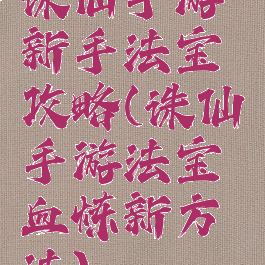 诛仙手游
新手法宝
攻略(诛仙
手游法宝
血炼新方
法)